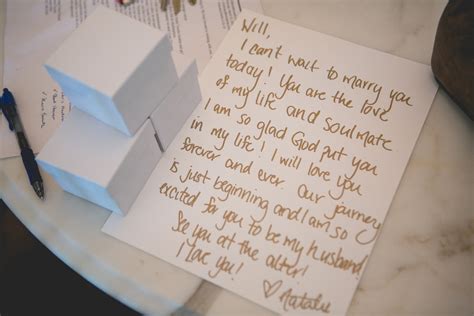 Will,
I can't wait to marry you
today! You are the love
of my life and soulmate
I am so glad God put you
in my life! I will love you
forever and ever. Our journey
is just beginning and I am so
excited for you to be my husband
See you at the alter!
I love you!
♡ Natalie